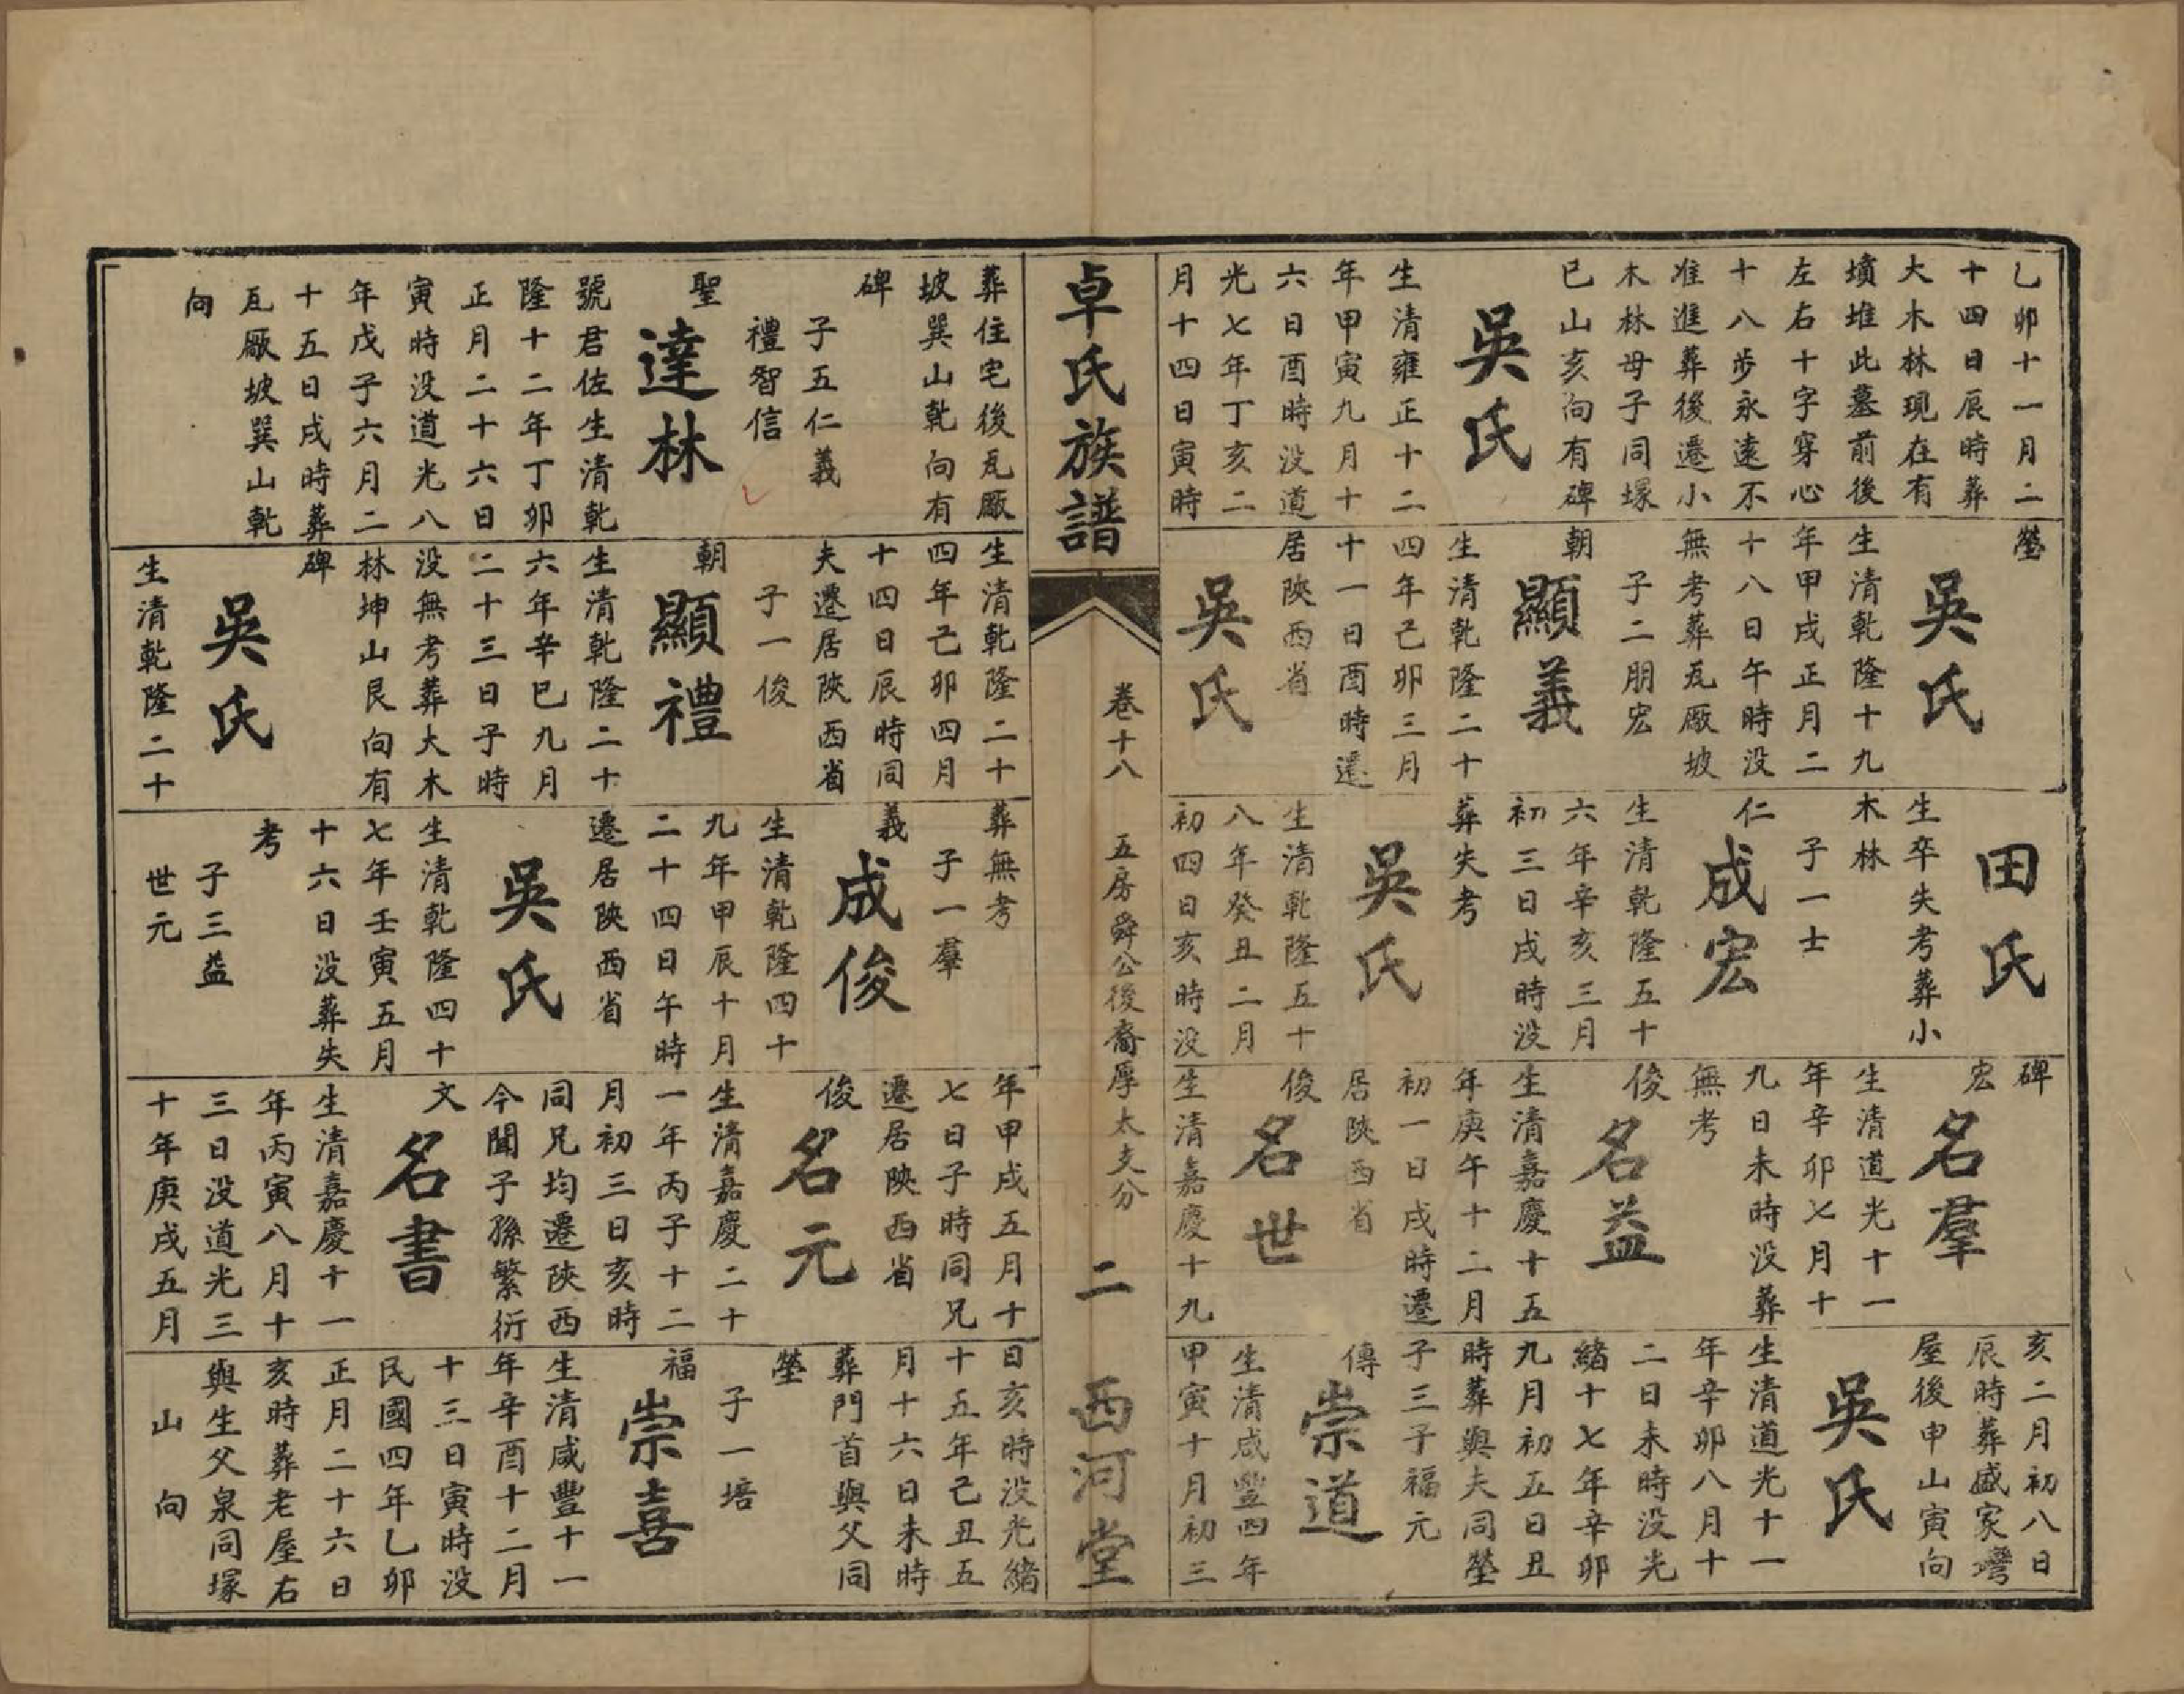 乙卯十一月二
十四日辰時葬
大木林現在有
墳堆此墓前後
左右十字穿心
十八步永遠不
准進葬後遷小
木林母子同塚
巳山亥向有碑
吳氏
生清雍正十二
年甲寅九月十
六日酉時没道
光七年丁亥二
月十四日寅時
塋
吳氏
生清乾隆十九
年甲戌正月二
十八日午時没
無考葬瓦厰坡
子二朋宏
朝
顯義
生清乾隆二十
四年己卯三月
十一日酉時遷
居陝西省
吳氏
田氏
生卒失考葬小
木林
子一士
仁
成宏
生清乾隆五十
六年辛亥三月
初三日戌時没
葬失考
吳氏
生清乾隆五十
八年癸丑二月
初四日亥時没
碑
宏
名羣
生清道光十一
年辛卯七月十
九日未時没葬
無考
俊
名益
生清嘉慶十五
年庚午十二月
初一日戌時遷
居陝西省
俊
名世
生清嘉慶十九
亥二月初八日
辰時葬盛家灣
屋後申山寅向
吳氏
生清道光十一
年辛卯八月十
二日未時没光
緒十七年辛卯
九月初五日丑
時葬與夫同塋
子三子福元
傳
崇道
生清咸豐四年
甲寅十月初三
卓氏族譜
卷十八
五房舜公後裔厚太支分
二
西河堂
葬住宅後瓦厰
坡巽山乾向有
碑
子五仁義
禮智信
聖
達林
號君佐生清乾
隆十二年丁卯
正月二十六日
寅時没道光八
年戊子六月二
十五日戌時葬
瓦厰坡巽山乾
向
生清乾隆二十
四年己卯四月
十四日辰時同
夫遷居陝西省
子一俊
朝
顯禮
生清乾隆二十
六年辛巳九月
二十三日子時
没無考葬大木
林坤山艮向有
碑
吳氏
生清乾隆二十
葬無考
子一羣
義
成俊
生清乾隆四十
九年甲辰十月
二十四日午時
遷居陝西省
吳氏
生清乾隆四十
七年壬寅五月
十六日没葬失
考
子三益
世元
年甲戌五月十
七日子時同兄
遷居陝西省
俊
名元
生清嘉慶二十
一年丙子十二
月初三日亥時
同兄均遷陝西
今聞子孫繁衍
文
名書
生清嘉慶十一
年丙寅八月十
三日没道光三
十年庚戌五月
日亥時没光緒
十五年己丑五
月十六日未時
葬門首與父同
塋
子一培
福
崇喜
生清咸豐十一
年辛酉十二月
十三日寅時没
民國四年乙卯
正月二十六日
亥時葬老屋右
與生父泉同塚
山向